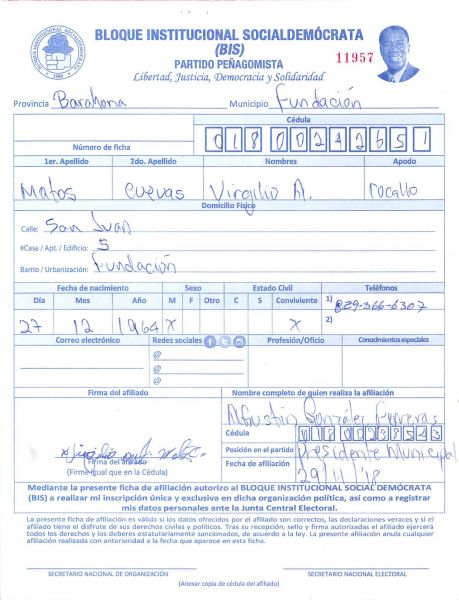 BLOQUE INSTITUCIONAL SOCIALDEMÓCRATA
(BIS)
11957
PARTIDO PEÑAGOMISTA
Libertad, Justicia, Democracia y Solidaridad
Provincia Barahona Municipio Fundación
Cédula
Número de ficha
1er. Apellido 2do. Apellido Nombres Apodo
Matos Cuevas Virgilio A.
Domicilio Físico
Calle: San Juan
#Casa / Apt. / Edificio: 5
Barrio / Urbanización: Fundación
Fecha de nacimiento Sexo Estado Civil Teléfonos
Día Mes Año M F Otro C S Conviviente 1) 829-366-6307
27 12 1964 X X 2)
Correo electrónico Redes sociales Profesión/Oficio Conocimientos especiales
@
@
@
Firma del afiliado Nombre completo de quien realiza la afiliación
González
Cédula
Posición en el partido Presidente Municipal
Firma del afiliado
(Firme igual que en la Cédula)
Fecha de afiliación 29/11/18
Mediante la presente ficha de afiliación autorizo al BLOQUE INSTITUCIONAL SOCIAL DEMÓCRATA
(BIS) a realizar mi inscripción única y exclusiva en dicha organización política, así como a registrar
mis datos personales ante la Junta Central Electoral.
La presente ficha de afiliación es válida si los datos ofrecidos por el afiliado son correctos, las declaraciones veraces y si el
afiliado tiene el disfrute de sus derechos civiles y políticos. Tras su recepción, sello y firma autorizadas el afiliado ejercerá
todos los derechos y los deberes estatutariamente sancionados, de acuerdo a la ley. La presente afiliación anula cualquier
afiliación realizada con anterioridad a la fecha que aparece en esta ficha.
SECRETARIO NACIONAL DE ORGANIZACIÓN SECRETARIO NACIONAL ELECTORAL
(Anexar copia de cédula del afiliado)